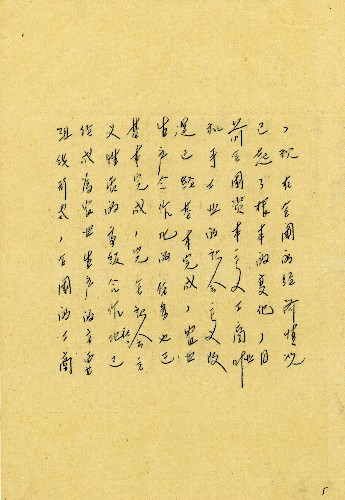 ，现在全国的经济情况
已起了根本的变化，目
前全国资本主义工商业
和手工业的社会主义改
造已经基本完成，农业
生产合作化的任务也已
基本完成，完全社会主
义性质的高级合作社已
经成为农业生产的主要
组织形式，全国的工商
5